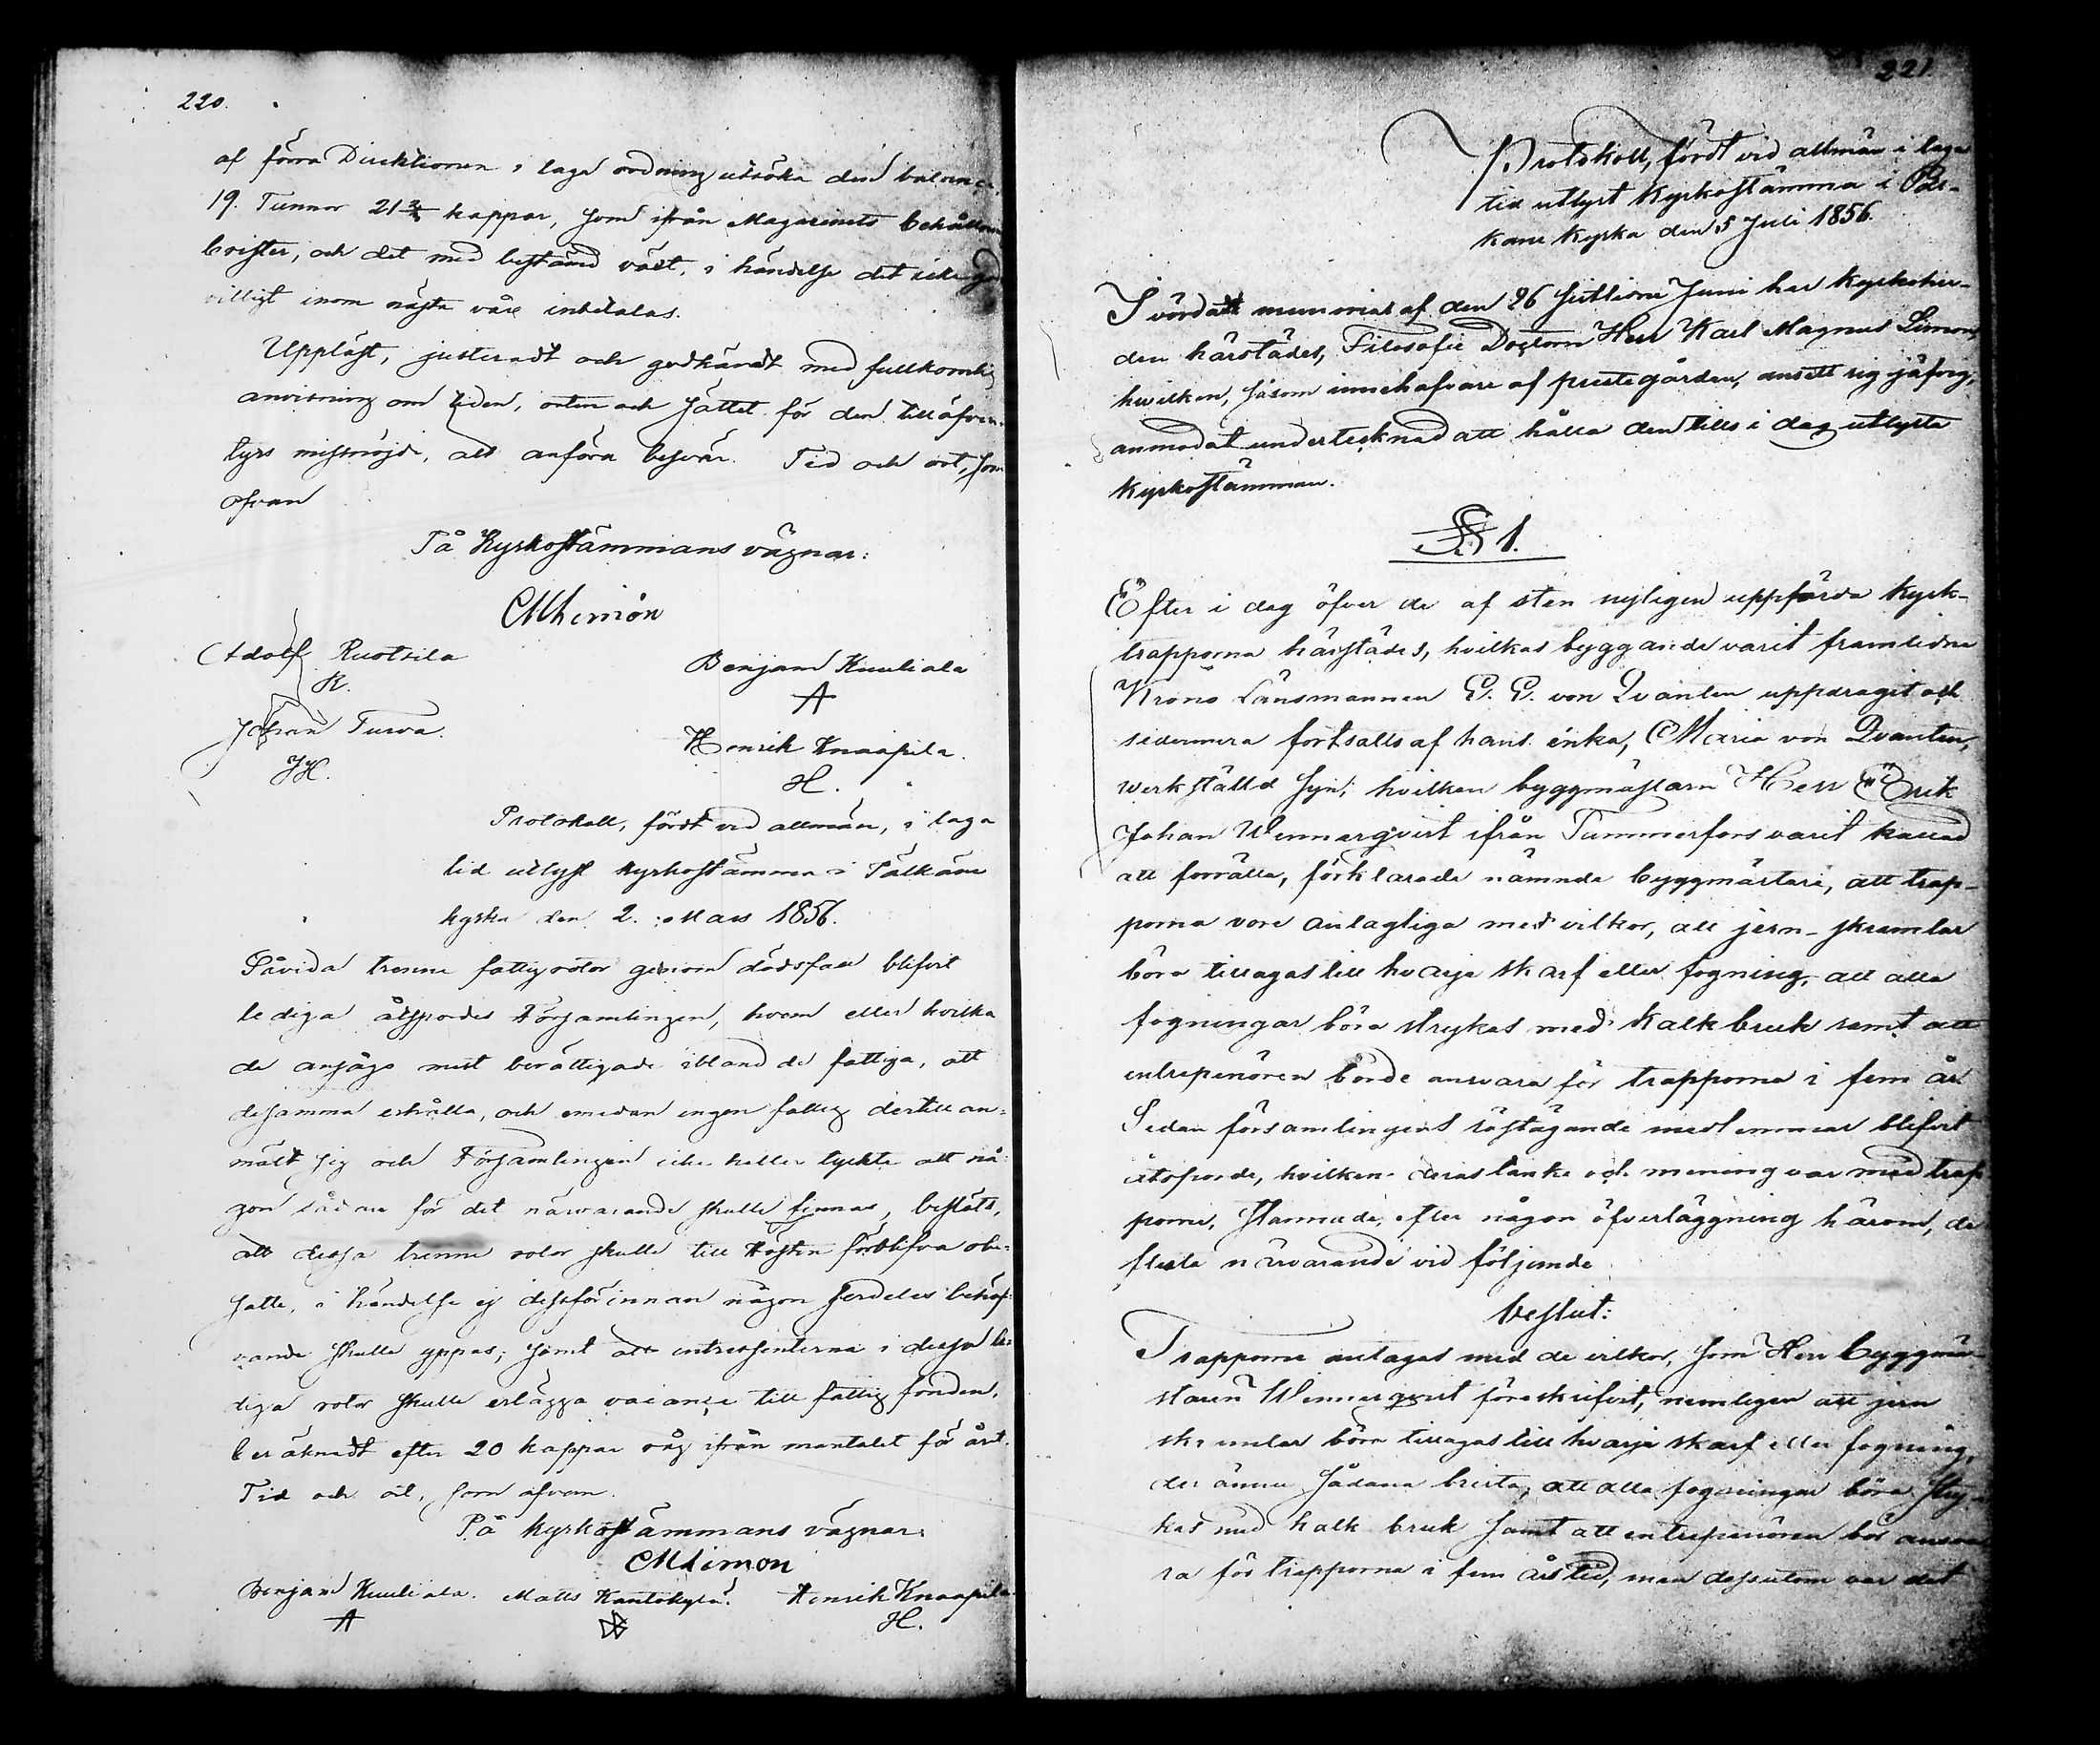 220.
af förra Direktionen i laga ordning utsöka den balance
19. Tunnor 21 3/4 kappar, som ifrån Magasinets behållning
brister, och det med bestånd växt, i händelse det icke god
villigt inom nästa vår inbetalas.
Uppläst, justeradt och godkändt med fullkomlig
anvisning om tiden, orten och sättet för den till äfven-
tyrs missnöjde, att anföra besvär. Tid och ort, som
ofvan
På Kyrkostämmans vägnar:
CM Limón
Adolf Ruotsila
R.
Benjam Kuuliala
A
Johan Turva.
JH.
Henrik Knaapila.
H.
Protokoll, fördt vid allmän, i laga
tid utlyst kyrkostämma i Pälkäne
kyrka den 2. Mars 1856.
Såvida trenne fattigrotor genom dödsfall blifvit
lediga åtspordes Församlingen, hvem eller hvilka
de ansågo mest berättigade ibland de fattiga, att
desamma erhålla, och emedan ingen fattig dertill an-
mält sig och Församlingen icke heller tyckte att nå-
gon sådan för det närvarande skulle finnas, beslöts,
att dessa trenne rotor skulle till Hösten förblifva obe-
satte, i händelse ej dessförinnan någon serdeles behöf-
vande skulle yppas; samt att intressenterna i dessa le-
diga rotor skulle erlägga vacance till fattig fonden,
beräknadt efter 20 kappar råg ifrån mantalet för året.
Tid och ort, som ofvan.
På kyrkostämmans vägnar:
CM Limon
Benjam Kuuliala. Matts Kantokylä. Henrik Knaapila
A H.
221
Protokoll, fördt vid allmän i laga
tid utlyst Kyrkostämma i Päl-
käne Kyrka den 5 Juli 1856.
I vördadt memorial af den 26 sistlidne Juni har Kyrkoher-
den härstädes, Filosofie Doctorn Herr Karl Magnus Limon,
hvilken, såsom innehafvare af prestegården, ansett sig jäfvig,
anmodat undertecknad att hålla den tills i dag utlysta
Kyrkostämman.
§ 1.
Efter i dag öfver de af sten nyligen uppförda kyrk-
trapporna härstädes, hvilkas byggande varit framlidne
Krono Länsmannen G. G. von Qvanten uppdraget och
sidermera fortsatts af hans enka, Maria von Qvanten,
werkställd syn, hvilken byggmästarn Herr Erik
Johan Wennerqvist ifrån Tammerfors varit kallad
att förrätta, förklarade nämnde byggmästare, att trap-
porna vore antagliga med vilkor, att jern-skramlar
böra tillagas till hvarje skarf eller fogning, att alla
fogningar böra strykas med Kalkbruk samt att
entrepenören borde ansvara för trapporna i fem år.
Sedan församlingens röstägande medlemmar blifvit
åtsporde, hvilken deras tanke och mening var med trap
porne, stannade, efter någon öfverläggning härom, de
flesta närvarande vid följande
beslut:
Trapporne antagas med de vilkor, som Herr byggmä-
staren Wennerqvist föreskrifvit, nemligen att jern
skramlar böra tillagas till hvarje skarf eller fogning,
der ännu sådana brista, att alla fogningar böra stry-
kas med kalk bruk samt att entrepenören bör ansva
ra för trapporna i fem års tid, men dessutom var det